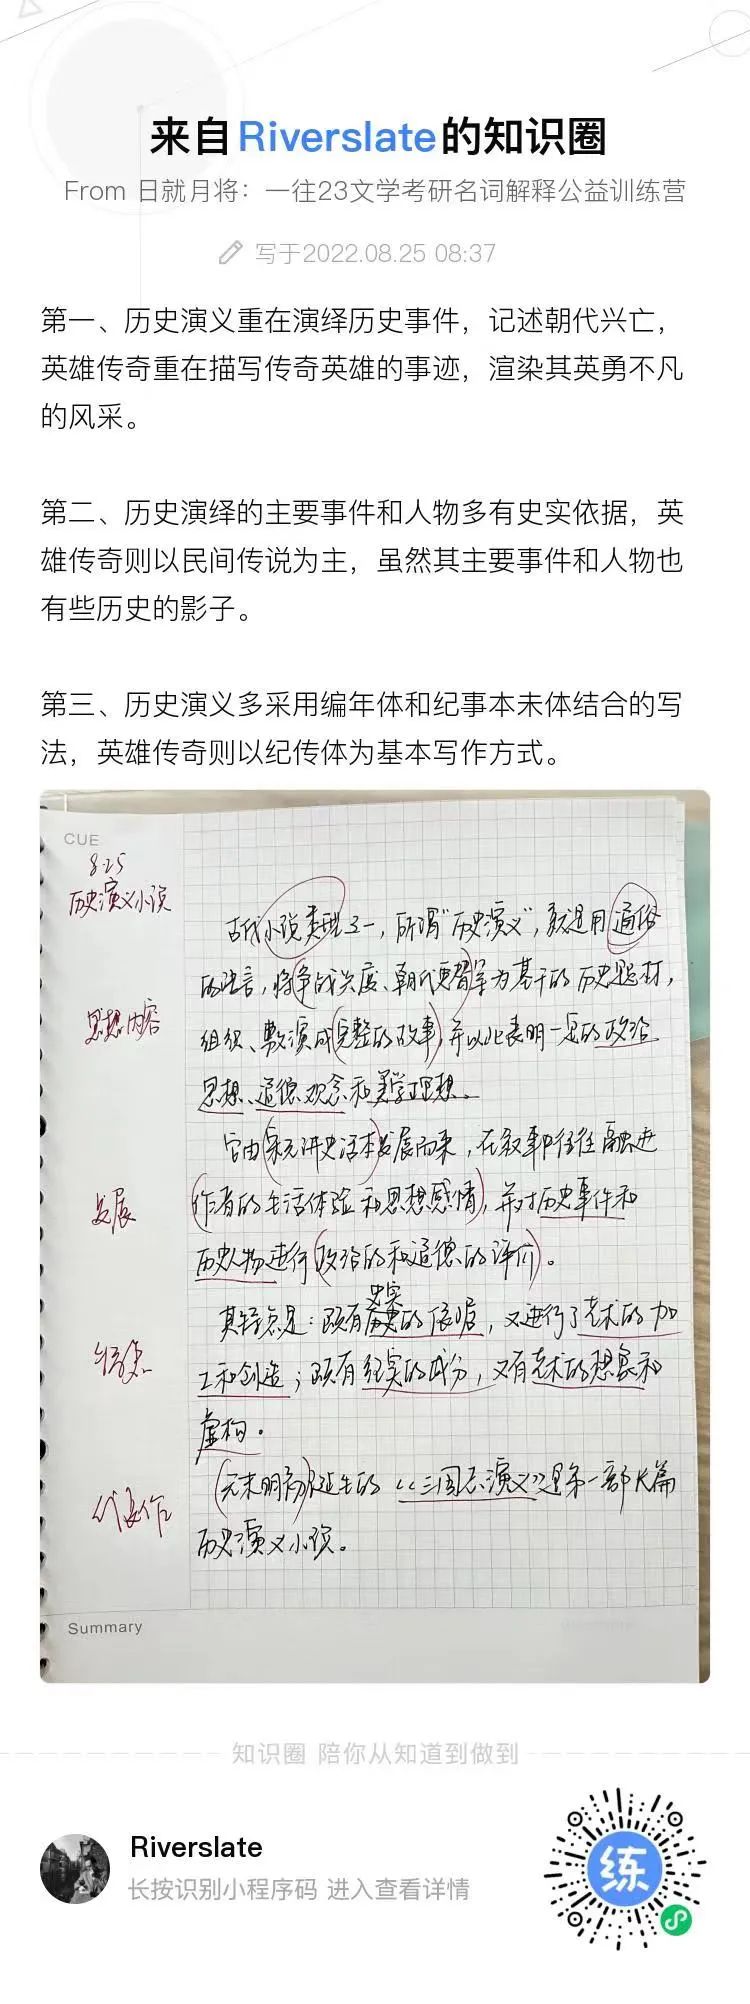 来自Riverslate的知识圈
From 日就月将：一往23文学考研名词解释公益训练营
写于2022.08.25 08:37
第一、历史演义重在演绎历史事件，记述朝代兴亡，
英雄传奇重在描写传奇英雄的事迹，渲染其英勇不凡
的风采。
第二、历史演绎的主要事件和人物多有史实依据，英
雄传奇则以民间传说为主，虽然其主要事件和人物也
有些历史的影子。
第三、历史演义多采用编年体和纪事本未体结合的写
法，英雄传奇则以纪传体为基本写作方式。
CUE
8.25
历史演义小说
古代小说类型之一，所谓“历史演义”，就是用通俗
的语言，将争战兴废、朝代更替等为基干的历史题材，
组织、敷演成完整的故事，并以此表明一定的政治
思想、道德观念和美学理想。
思想内容
它由宋元讲史话本发展而来，在叙事中往往融进
作者的生活体验和思想感情，并对历史事件和
历史人物进行政治的和道德的评价。
发展
其特点是：既有史实的依据，又进行了艺术的加
工和创造；既有纪实的成分，又有艺术的想象和
虚构。
特点
元末明初诞生的《三国志演义》是第一部长篇
历史演义小说。
代表作
Summary
知识圈 陪你从知道到做到
Riverslate
长按识别小程序码 进入查看详情
练